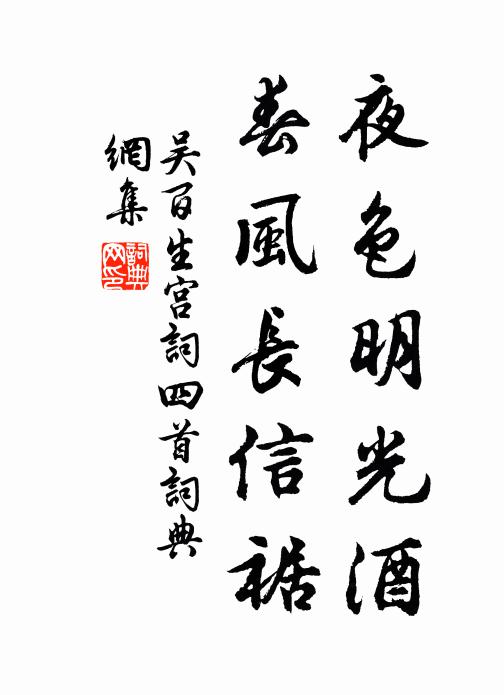 夜色明光酒
春風長信裾
吴百生宫詞四首詞典
網集
詞典
网印